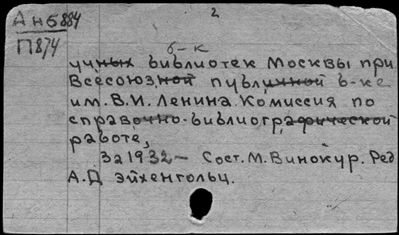 Ан б884
П874
2
б-к
учных библиотек Москвы при
Всесоюзной публичной б-ке
им. В.И. Ленина. Комиссия по
справочно-библиографической
работе,
За 1932 — Сост. М. Винокур. Ред
А.Д Эйхенгольц.